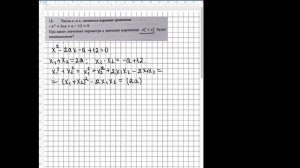 18. Числа x₁ и x₂ являются корнями уравнения
-x² + 2ax + a - 12 = 0.
При каких значениях параметра a значение выражения x₁² + x₂² будет
наименьшим?
x² - 2ax - a + 12 = 0
x₁ + x₂ = 2a; x₁·x₂ = -a + 12
x₁² + x₂² = x₁² + x₂² + 2x₁x₂ - 2x₁x₂ =
= (x₁ + x₂)² - 2x₁x₂ = (2a)